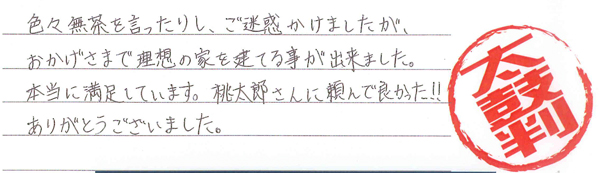 色々無茶を言ったりし、ご迷惑かけましたが、
おかげさまで理想の家を建てる事が出来ました。
本当に満足しています。桃太郎さんに頼んで良かった!!
ありがとうございました。
太鼓判